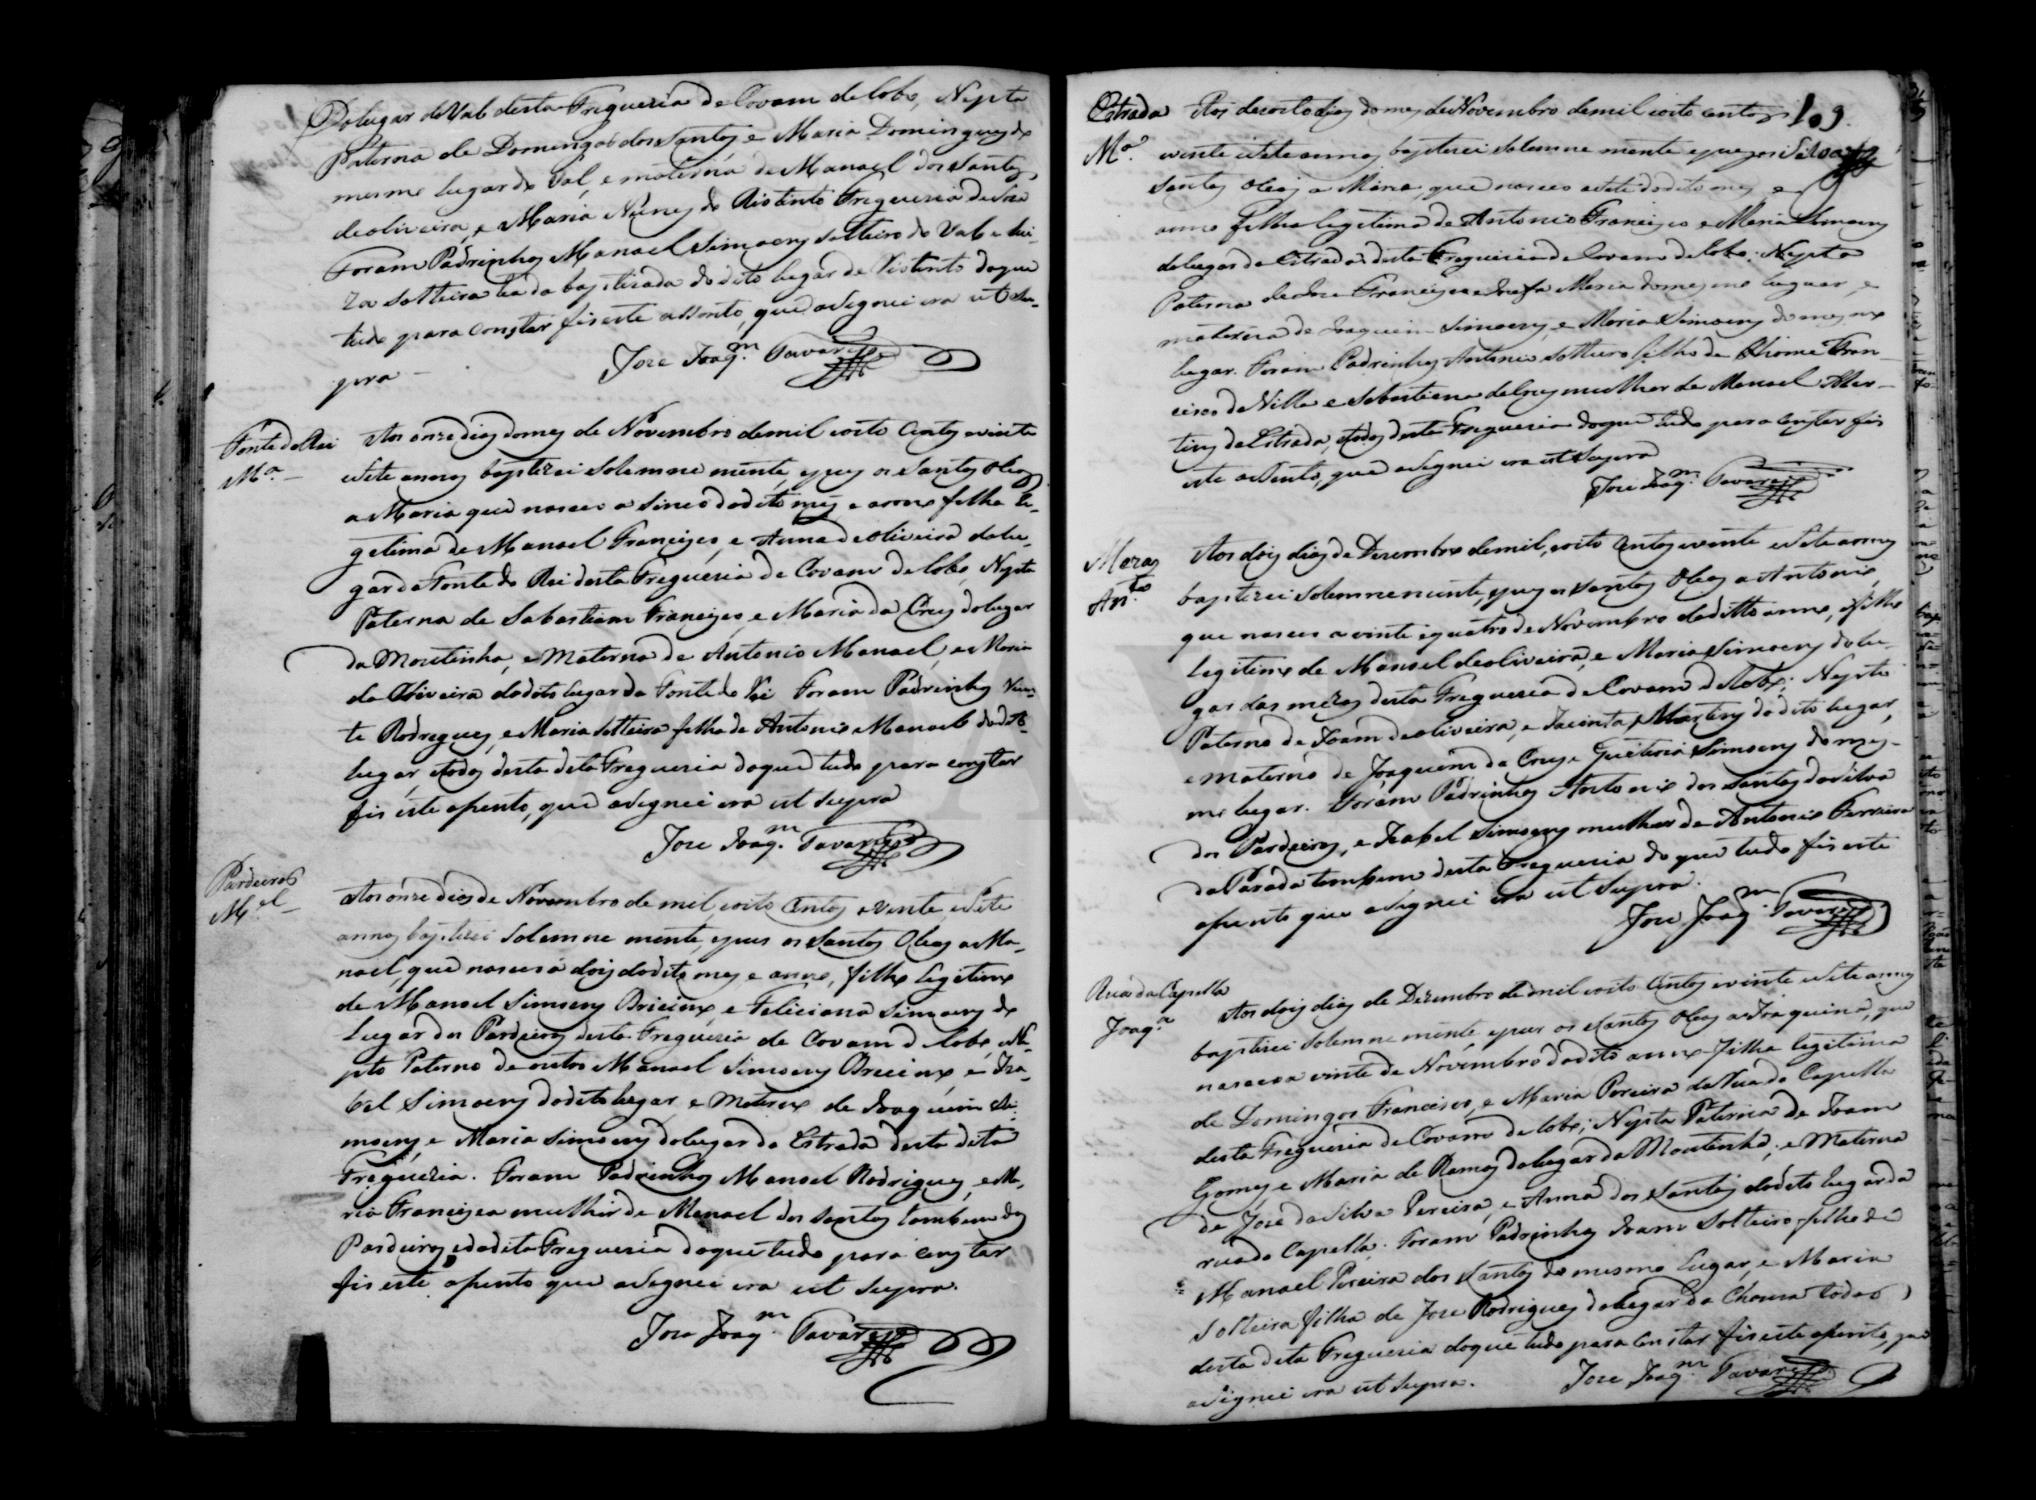 Do lugar do Val desta Freguezia de Covam do lobo, Nepta
Paterna de Domingos dos Santos, e Maria Domingues do
mesmo lugar do Val, e materna de Manoel dos Santos
de oliveira, e Maria Nunes do Riotinto Freguezia de Soza
Foram Padrinhos Manoel Simoens solteiro do Val e Lui-
za solteira ha do baptizada do dito lugar de Riotinto do que
tudo para constar fis este assento, que asignei era ut su-
pra
Joze Joaq.m Tavares
Fonte do Rei
M.a
Aos onze dias do mes de Novembro de mil e oito centos e vinte
e sete annos baptizei solemne mente, e pus os Santos oleos
a Maria que nasceo a sinco do dito mes e anno filha le-
getima de Manoel Francisco, e Anna de oliveira do lu-
gar da Fonte do Rei desta Freguezia de Covam do lobo, Nepta
Paterna de Sabastiam Francisco, e Maria da Crus do lugar
da Moutinha, e Materna de Antonio Manoel, e Maria
de Oliveira do dito lugar da Fonte do Rei Foram Padrinhos Vicen-
te Rodrigues, e Maria solteira filha de Antonio Manoel do dito
lugar, e todos desta dita Freguezia do que tudo para constar
fis este asento, que asignei era ut supra
Joze Joaq.m Tavares
Pardeiros
M.el
Aos onze dias de Novembro de mil, e oito centos e vinte, e sete
annos baptizei solemne mente, e pus os Santos Oleos a Ma-
noel, que nasceo a dois do dito mes, e anno, filho legitimo
de Manoel Simoens Bricimo, e Feliciana Simoens do
Lugar dos Pardeiros desta Freguezia de Covam do lobo, e Ne-
pto Paterno de outro Manoel Simoens Bricimo, e Iza-
bel Simoens do dito lugar, e Materno de Joaquim Si-
moens, e Maria Simoens do lugar da Estrada desta dita
Freguezia. Foram Padrinhos Manoel Rodrigues, e Ma-
ria Francisca mulher de Manoel dos Santos tambem dos
Pardeiros e da dita Freguezia do que tudo para constar
fis este asento que asignei era ut supra.
Joze Joaq.m Tavares
109.
Estrada
M.a
Aos dezoito dias do mes de Novembro de mil e oito centos
e vinte e sete annos baptizei solemne mente e pus os
Santos oleos a Maria, que nasceo a sete do dito mes, e
anno filha legitima de Antonio Francisco e Maria Simoens
do lugar da Estrada desta Freguezia de Covam do lobo; Nepta
Paterna de Joze Francisco e Josefa Maria do mesmo lugar, e
materna de Joaquim Simoens, e Maria Simoens do mesmo
lugar. Foram Padrinhos Antonio solteiro filho de Thome Fran-
cisco da Villa e Sebastiana mulher de Manoel Mar-
tins da Estrada, todos desta Freguezia do que tudo para constar fis
este asento, que asignei era ut supra
Joze Joaq.m Tavares
Mezas
Ant.o
Aos dois dias de Dezembro de mil, e oito centos e vinte e sete annos
baptizei solemnemente, e pus os santos Oleos a Antonio,
que nasceo a vinte e quatro de Novembro do ditto anno, filho
legitimo de Manoel de oliveira, e Maria Simoens do lu-
gar das mezas desta Freguezia de Covam do lobo; Nepto
Paterno de Joam de oliveira, e Jacinta Martins do dito lugar,
e materno de Joaquim da Crus e Quiteria Simoens do mes-
mo lugar. Foram Padrinhos Antonio dos Santos da Silva
dos Pardeiros, e Izabel Simoens mulher de Antonio Ferreira
da Parada tambem desta Freguezia do que tudo fis este
asento que asignei era ut supra.
Joze Joaq.m Tavares
Rua da Capella
Joaq.a
Aos dois dias de Dezembro de mil e oito centos e vinte e sete annos
baptizei solemne mente, e pus os Santos Oleos a Joaquina, que
nasceo a vinte de Novembro do dito anno filha legitima
de Domingos Francisco, e Maria Pereira da Rua da Capella
desta Freguezia de Covam do lobo; Nepta Paterna de Joam
Gomes e Maria de Ramos do lugar da Moutinha, e Materna
de Joze da Silva Pereira, e Anna dos Santos do dito lugar da
rua da Capella. Foram Padrinhos Joam solteiro filho de
Manoel Pereira dos Santos do mesmo lugar, e Maria
solteira filha de Joze Rodrigues do lugar da Chousa todos
desta dita Freguezia do que tudo para constar fis este asento, que
asignei era ut supra.
Joze Joaq.m Tavares